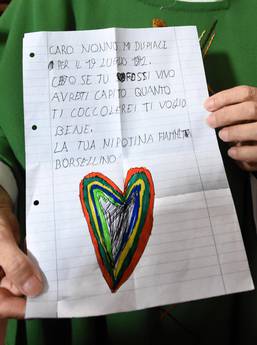 CARO NONNO MI DISPIACE
PER IL 19 LUGLIO 1992.
SE TU FOSSI VIVO
AVRETI CAPITO QUANTO
TI COCCOLEREI TI VOGLIO
BENE.
LA TUA NIPOTINA FIAMMETTA
BORSELLINO